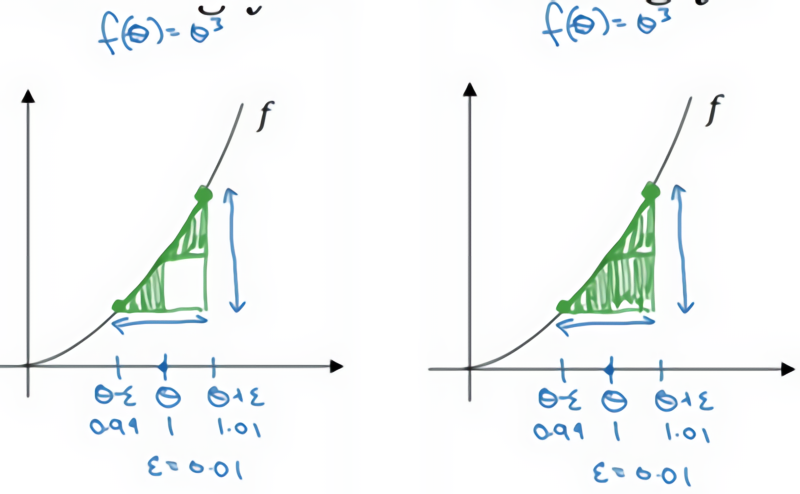 f(θ)=θ³
f
θ-ε θ θ+ε
0.99 1 1.01
ε=0.01
f(θ)=θ³
f
θ-ε θ θ+ε
0.99 1 1.01
ε=0.01